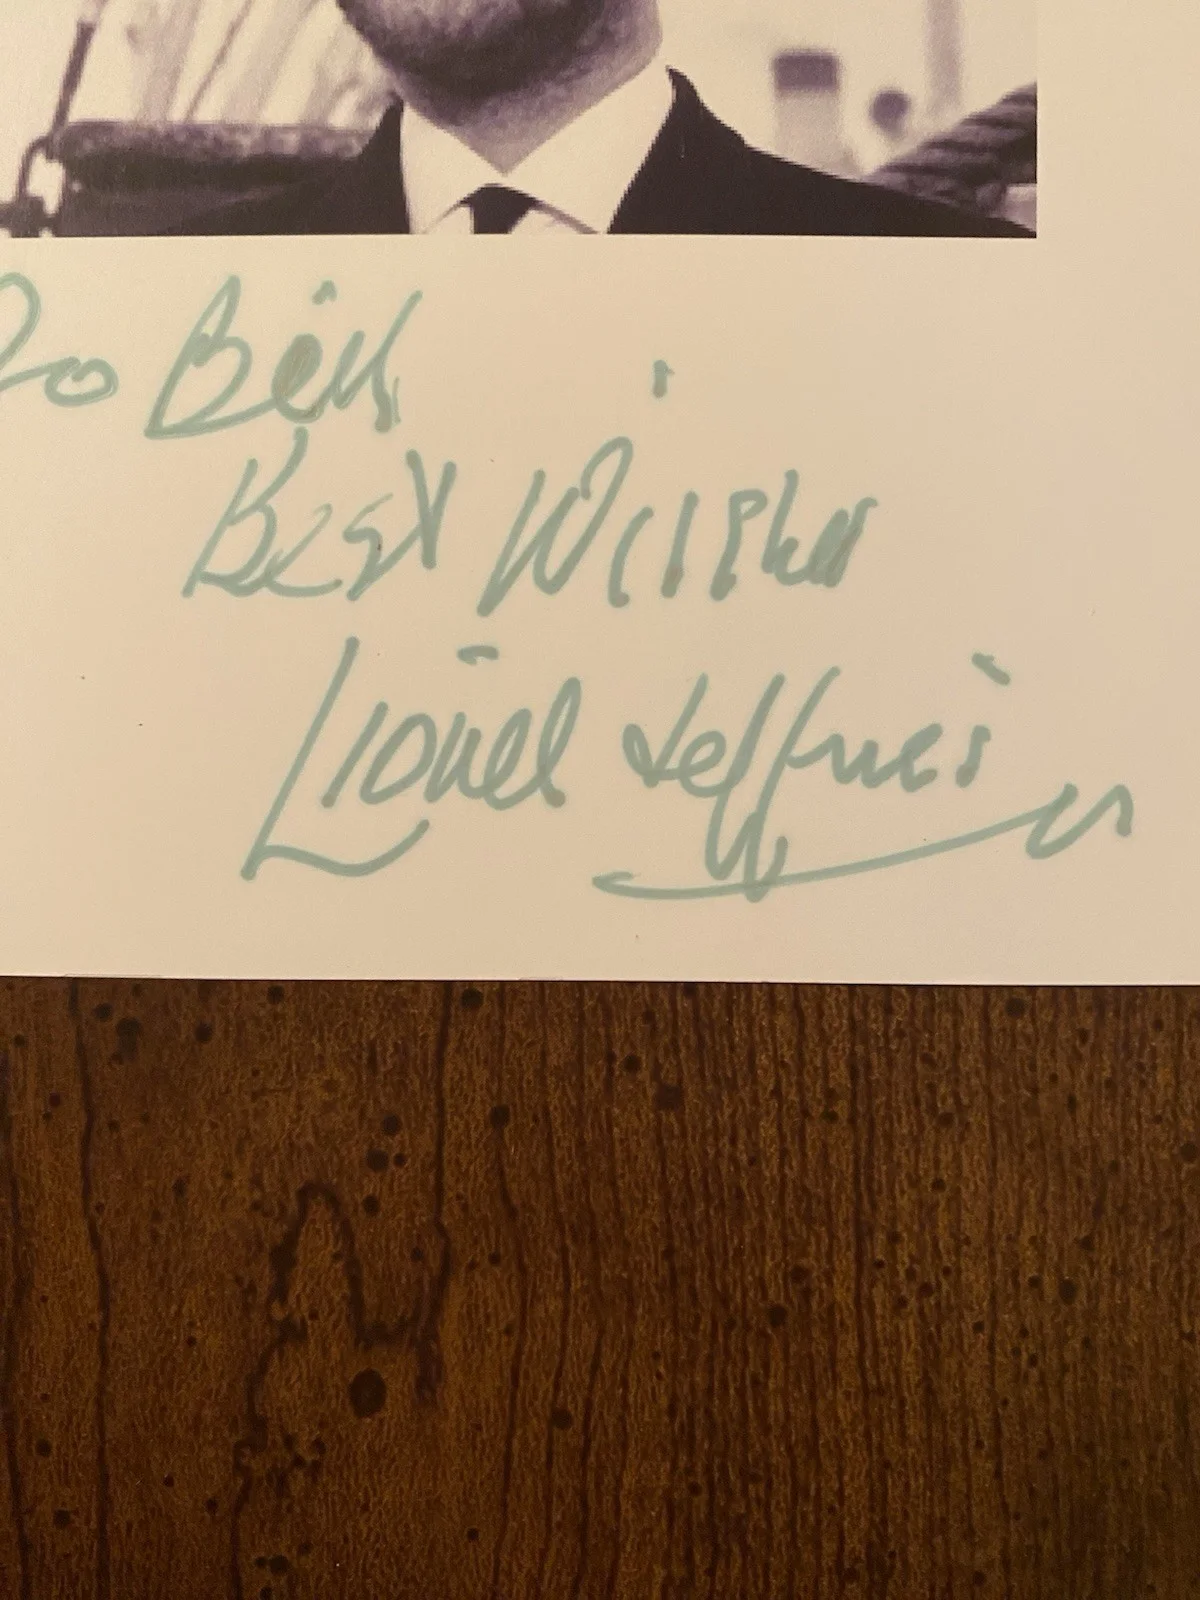 To Bill
Best Wishes
Lionel Jeffries